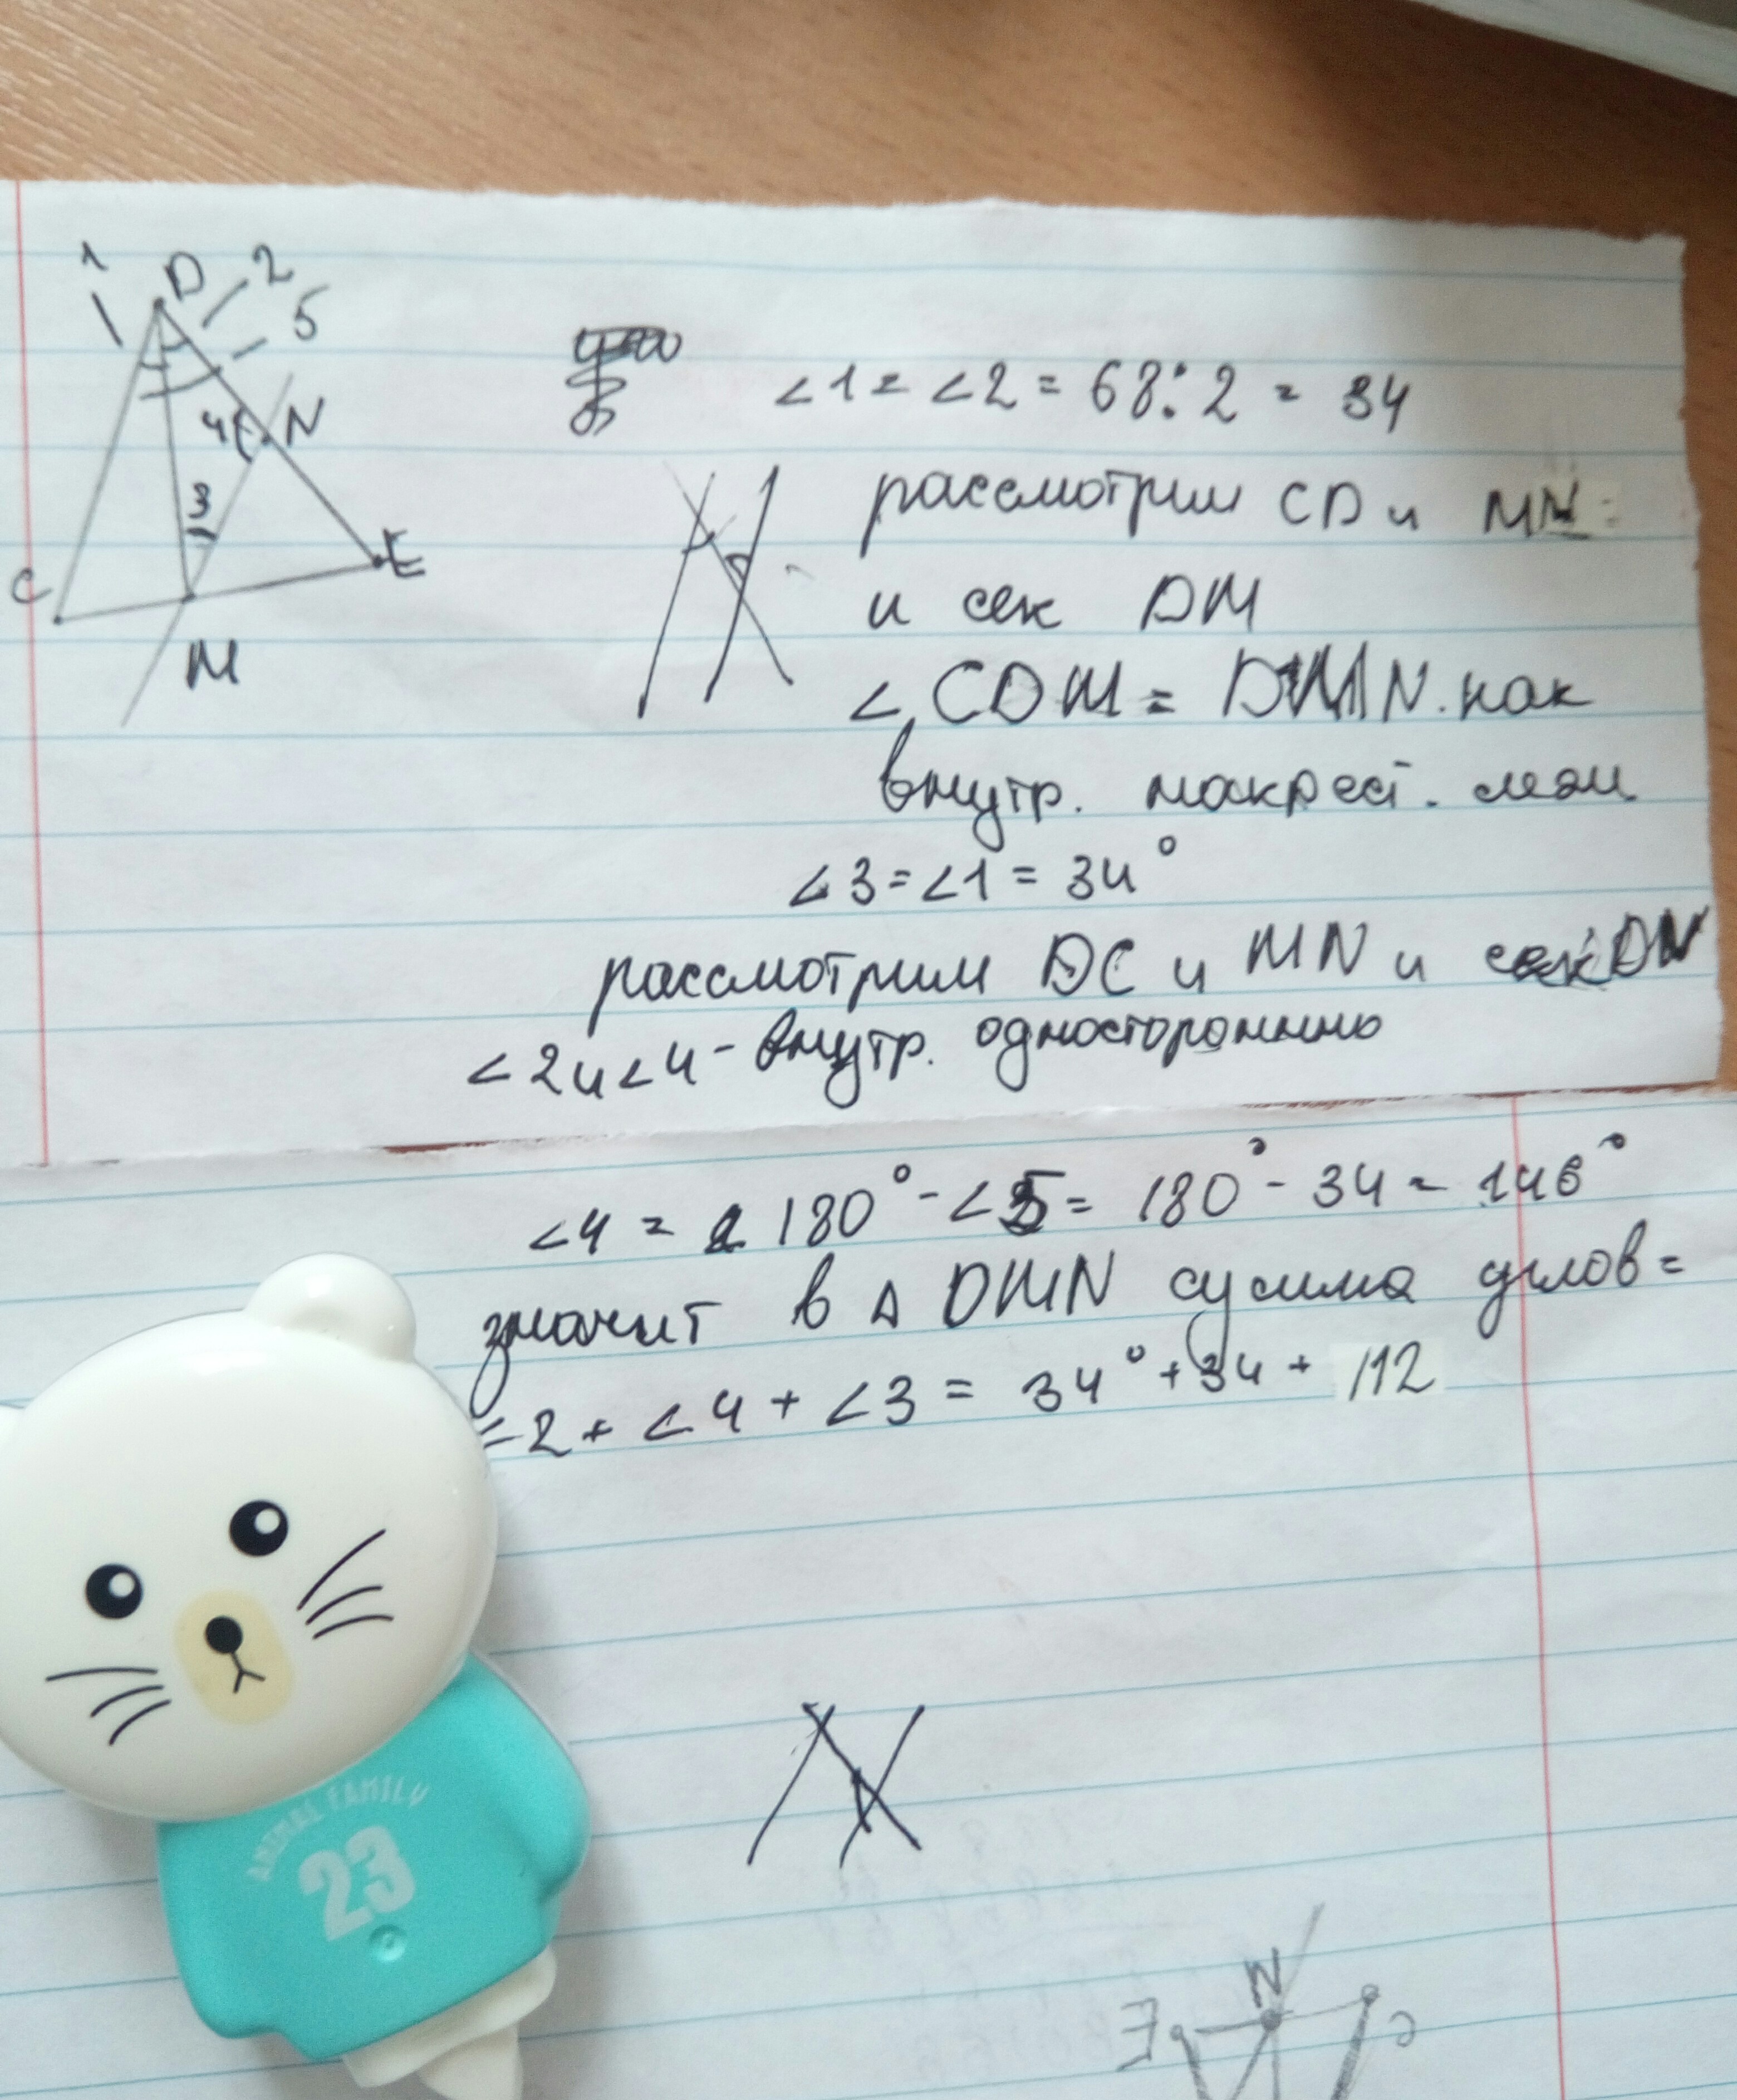 1
D
2
5
4
N
3
C
E
M
∠1 = ∠2 = 68:2 = 34
рассмотрим CD и MN
и сек DM
∠CDM = DMN. как
внутр. накрест. леж
∠3 = ∠1 = 34°
рассмотрим DC и MN и сек DN
∠2 и ∠4 - внутр. односторонние
∠4 = 180° - ∠5 = 180° - 34 = 146°
значит в Δ DMN сумма углов =
= 2 + ∠4 + ∠3 = 34° + 34 + 112
ANIMAL FAMILY
23
N
E
C